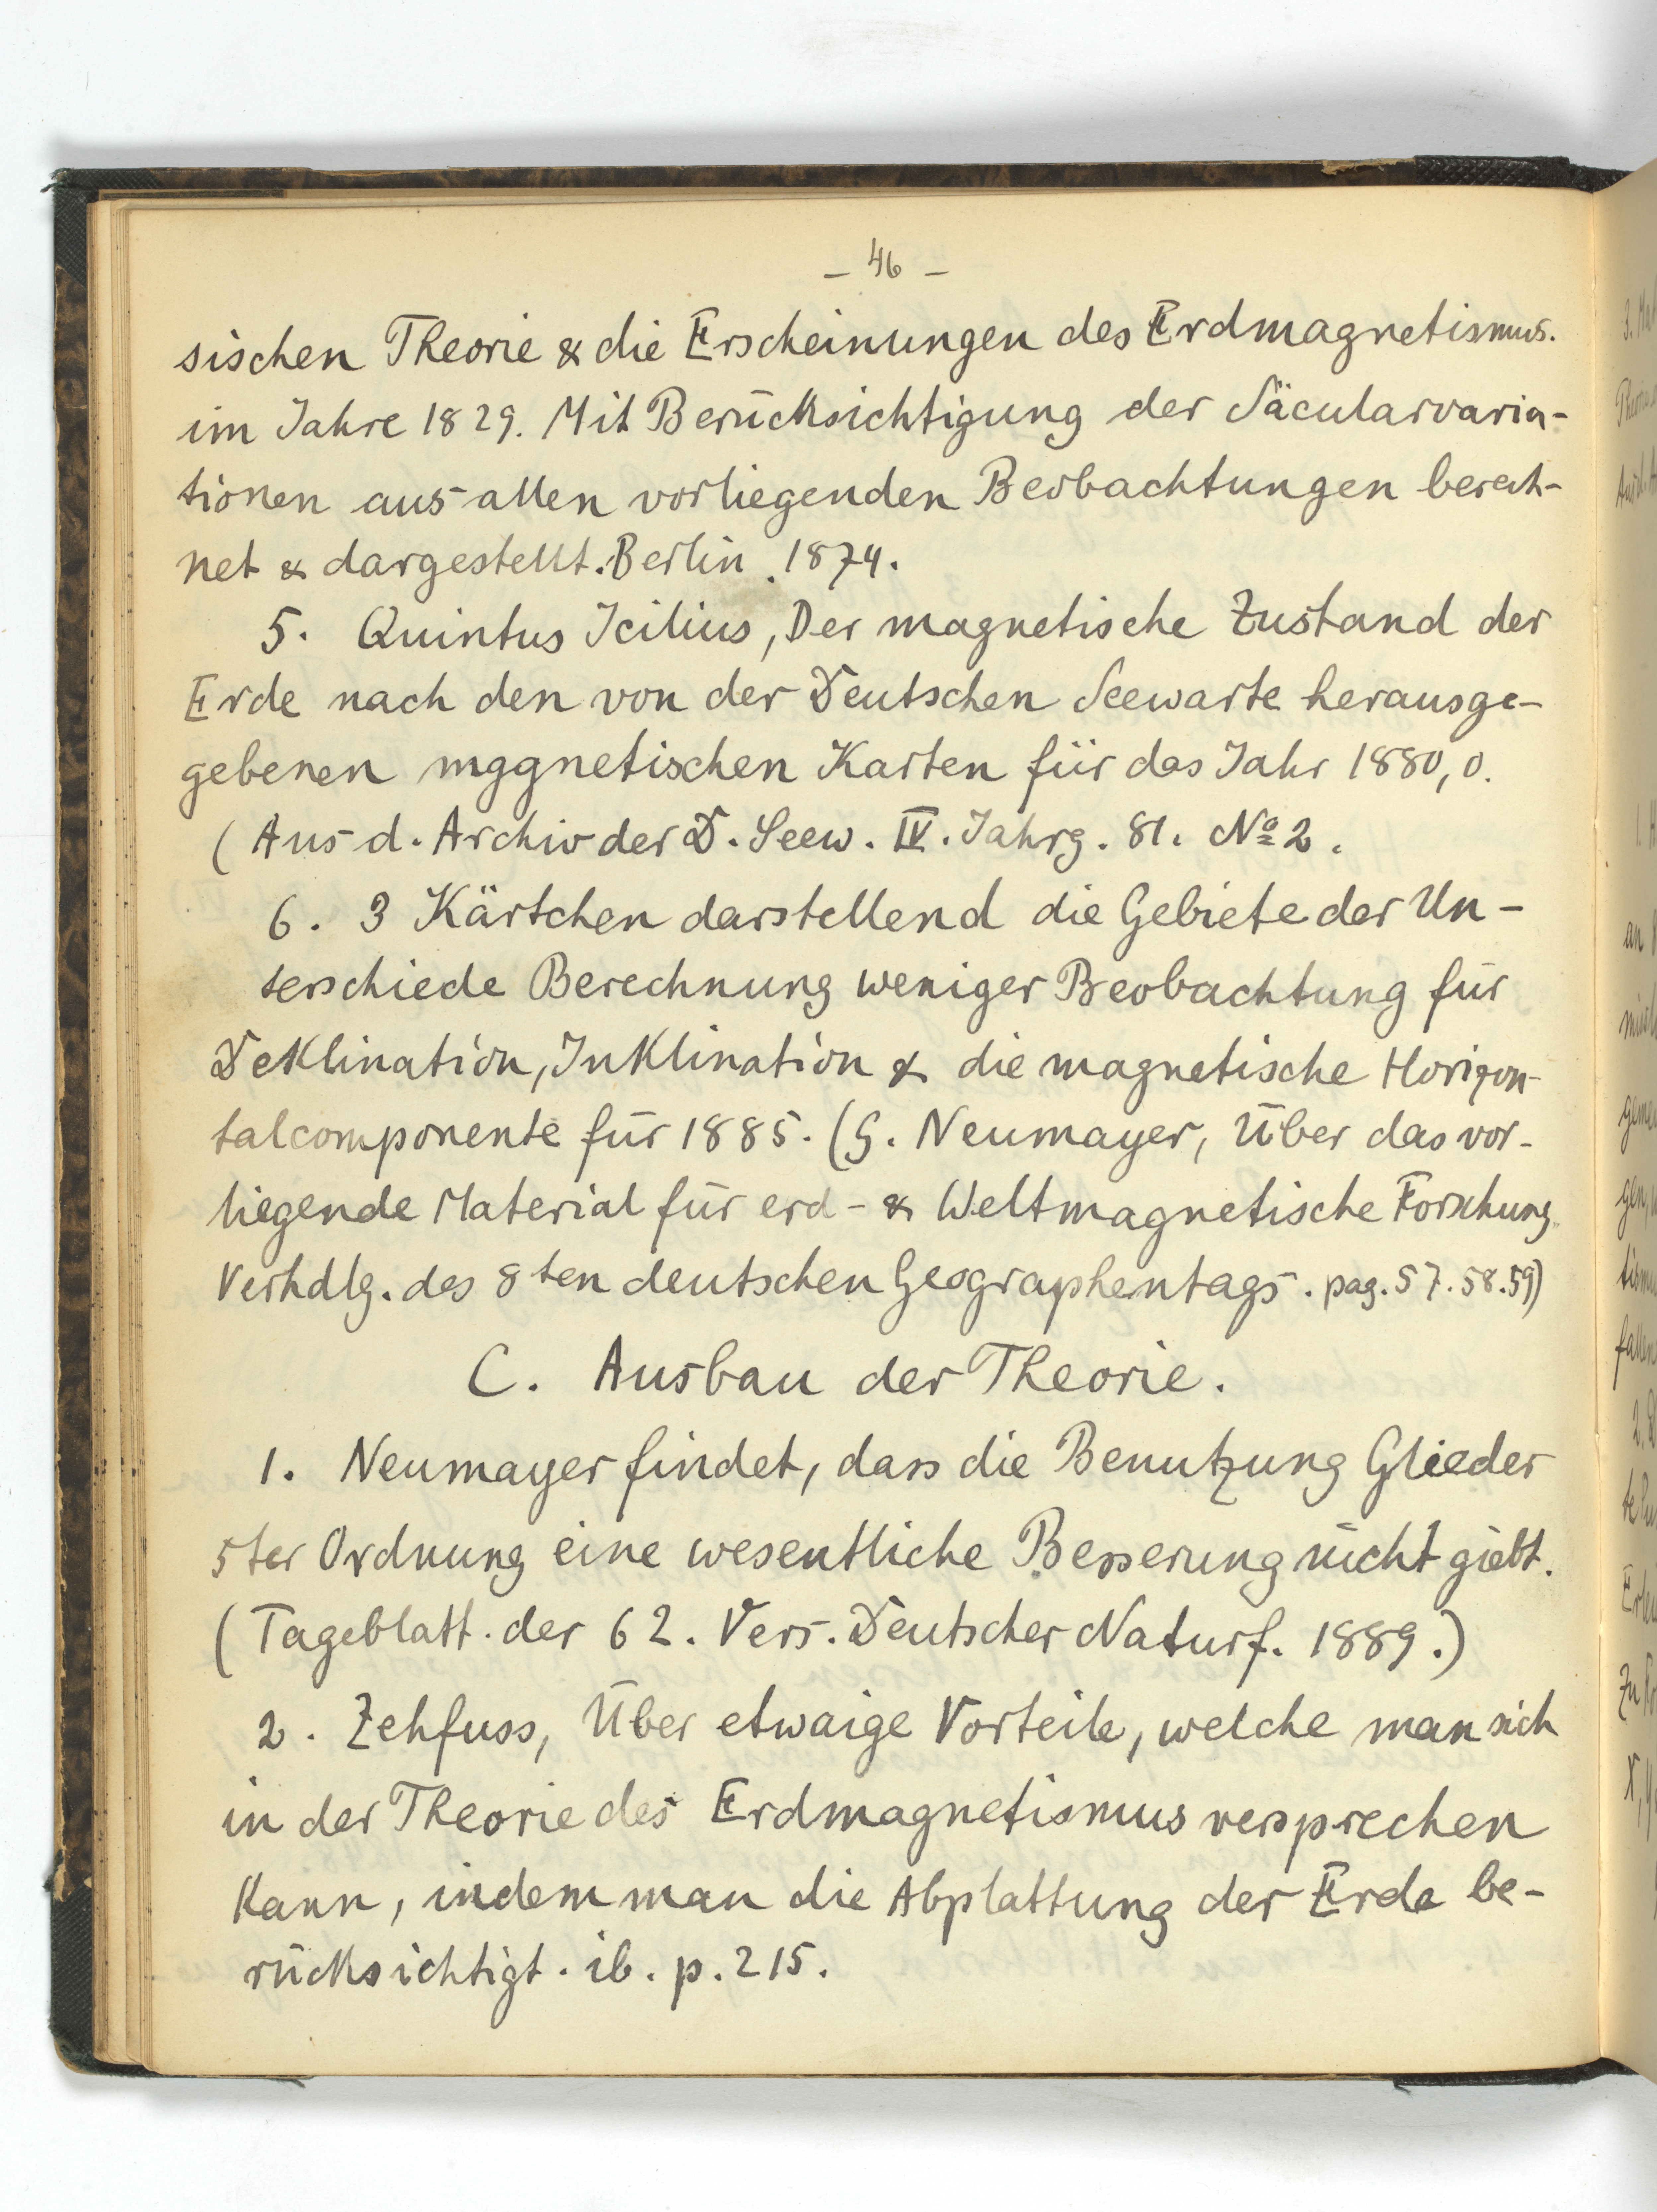 – 46 –
sischen Theorie & die Erscheinungen des Erdmagnetismus.
im Jahre 1829. Mit Berücksichtigung der Säcularvaria-
tionen aus allen vorliegenden Beobachtungen berech-
net & dargestellt. Berlin. 1874.
5. Quintus Icilius, Der magnetische Zustand der
Erde nach den von der Deutschen Seewarte herausge-
gebenen mggnetischen Karten für das Jahr 1880,0.
(Aus d. Archiv der D. Seew. IV. Jahrg. 81. No 2.
6. 3 Kärtchen darstellend die Gebiete der Un-
terschiede Berechnung weniger Beobachtung für
Deklination, Inklination & die magnetische Horizon-
talcomponente für 1885. (G. Neumayer, Über das vor-
liegende Material für erd- & Weltmagnetische Forschung.
Verhdlg. des 8ten deutschen Geographentags. pag. 57. 58. 59)
C. Ausbau der Theorie.
1. Neumayer findet, dass die Benutzung Glieder
5ter Ordnung eine wesentliche Besserung nicht giebt.
(Tageblatt. der 62. Vers. Deutscher Naturf. 1889.)
2. Zehfuss, Über etwaige Vorteile, welche man sich
in der Theorie des Erdmagnetismus versprechen
kann, indem man die Abplattung der Erde be-
rücksichtigt. ib. p. 215.